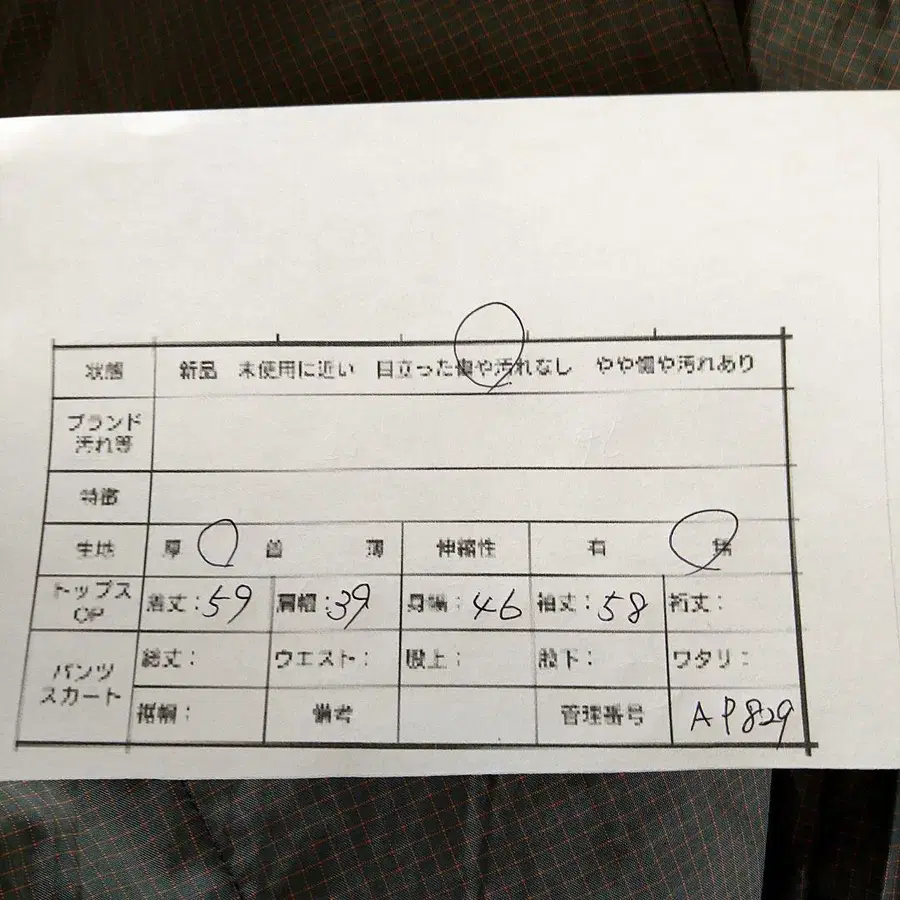 状態 新品 未使用に近い 目立った傷や汚れなし やや傷や汚れあり
ブランド
汚れ等
特徴
生地 厚 普 薄 伸縮性 有 無
トップス
OP
着丈：59 肩幅：39 身幅：46 袖丈：58 裄丈：
パンツ
スカート
総丈： ウエスト： 股上： 股下： ワタリ：
裾幅： 備考 管理番号 AP829